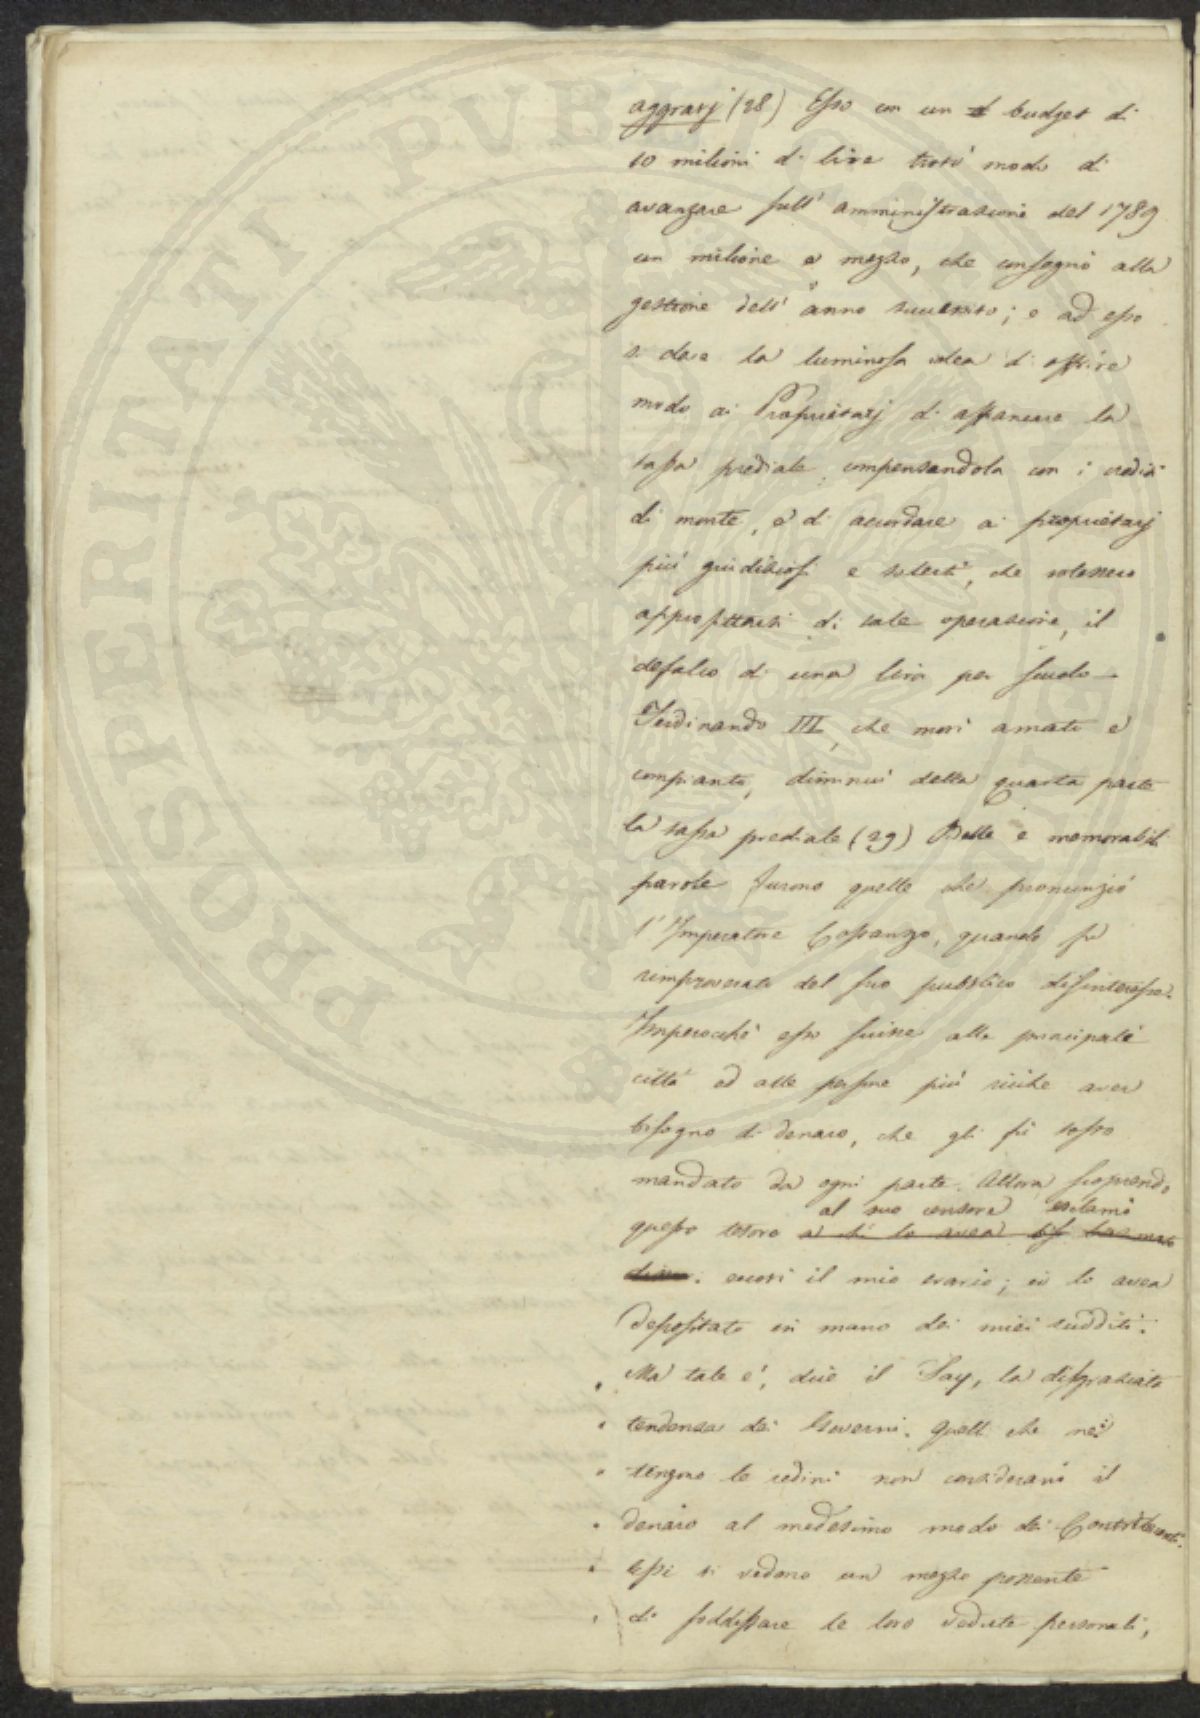 aggravj (28) Esso con un d budget di
10 milioni di lire trovò modo di
avanzare sull' amministrazione del 1789
un milione e mezzo, che consegnò alla
gestione dell' anno successivo; e ad esso
si deve la luminosa idea di offrire
modo ai Proprietarj di affrancare la
tassa prediale compensandola con i crediti
di monte, e di accordare ai proprietarj
più giudiziosi e solerti, che volessero
approfittarsi di tale operazione, il
defalco di una lira per scudo –
Ferdinando III, che morì amato e
compianto, diminuì della quarta parte
la tassa prediale (29) Belle e memorabili
parole furono quelle che pronunziò
l' Imperatore Costanzo, quando fù
rimproverato del suo pubblico disinteresse.
Imperocchè esso scrisse alle principali
città ed alle persone più ricche aver
bisogno di denaro, che gli fù tosto
mandato da ogni parte. Allora scoprendo
al suo censore esclamò
questo tesoro a chi lo avea
: eccovi il mio erario; io lo avea
depositato in mano dei miei sudditi.
Ma tale è, dice il Say, la disgraziata
tendenza dei Governi. Quelli che ne
tengono le redini non considerano il
denaro al medesimo modo dei Contribuenti.
Essi vi vedono un mezzo possente
di soddisfare le loro vedute personali,
PROSPERITATI PUBLICAE